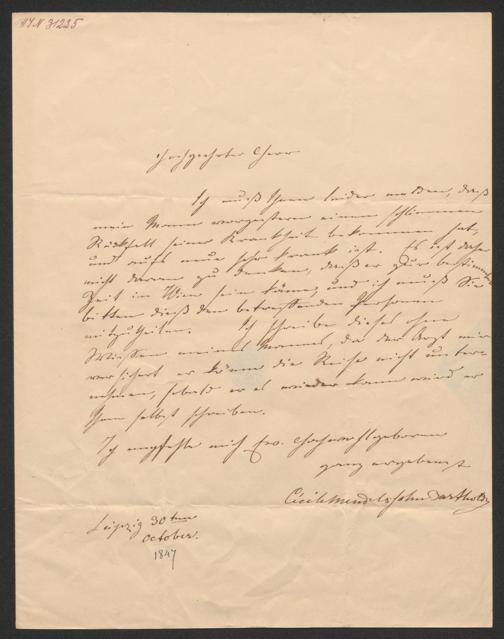 HIN 31225
Hochgeehrter Herr
Ich muß Ihnen leider melden, daß
mein Mann vorgestern einen schlimmen
Rückfall seiner Krankheit bekommen hat,
und aufs neue sehr krank ist. Es ist daher
nicht daran zu denken, daß er zur bestimmten
Zeit in Wien sein könne, und ich muß Sie
bitten dieß den betreffenden Personen
mitzutheilen. Ich schreibe dieses ohne
Wissen meines Mannes, da der Arzt mir
versichert er könne die Reise nicht unter-
nehmen, sobald er es wieder kann wird er
Ihnen selbst schreiben.
Ich empfehle mich Ew. Hochwohlgeboren
ganz ergebenst
Cécile Mendelssohn Bartholdy
Leipzig 30ten
October.
1847